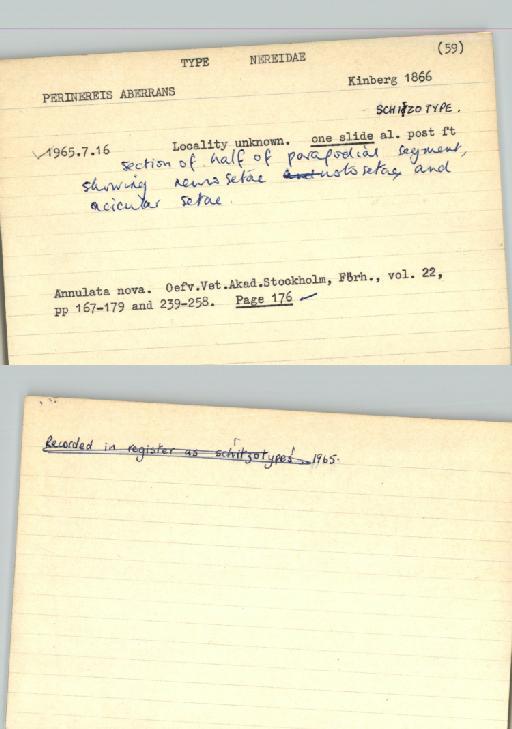 (59)
TYPE NEREIDAE
PERINEREIS ABERRANS Kinberg 1866
SCHIZOTYPE.
1965.7.16 Locality unknown. one slide al. post ft
section of half of parapodial segment,
showing neurosetae and notosetae, and
acicular setae.
Annulata nova. Oefv.Vet.Akad.Stockholm, Förh., vol. 22,
pp 167-179 and 239-258. Page 176
Recorded in register as schitzotypes 1965.